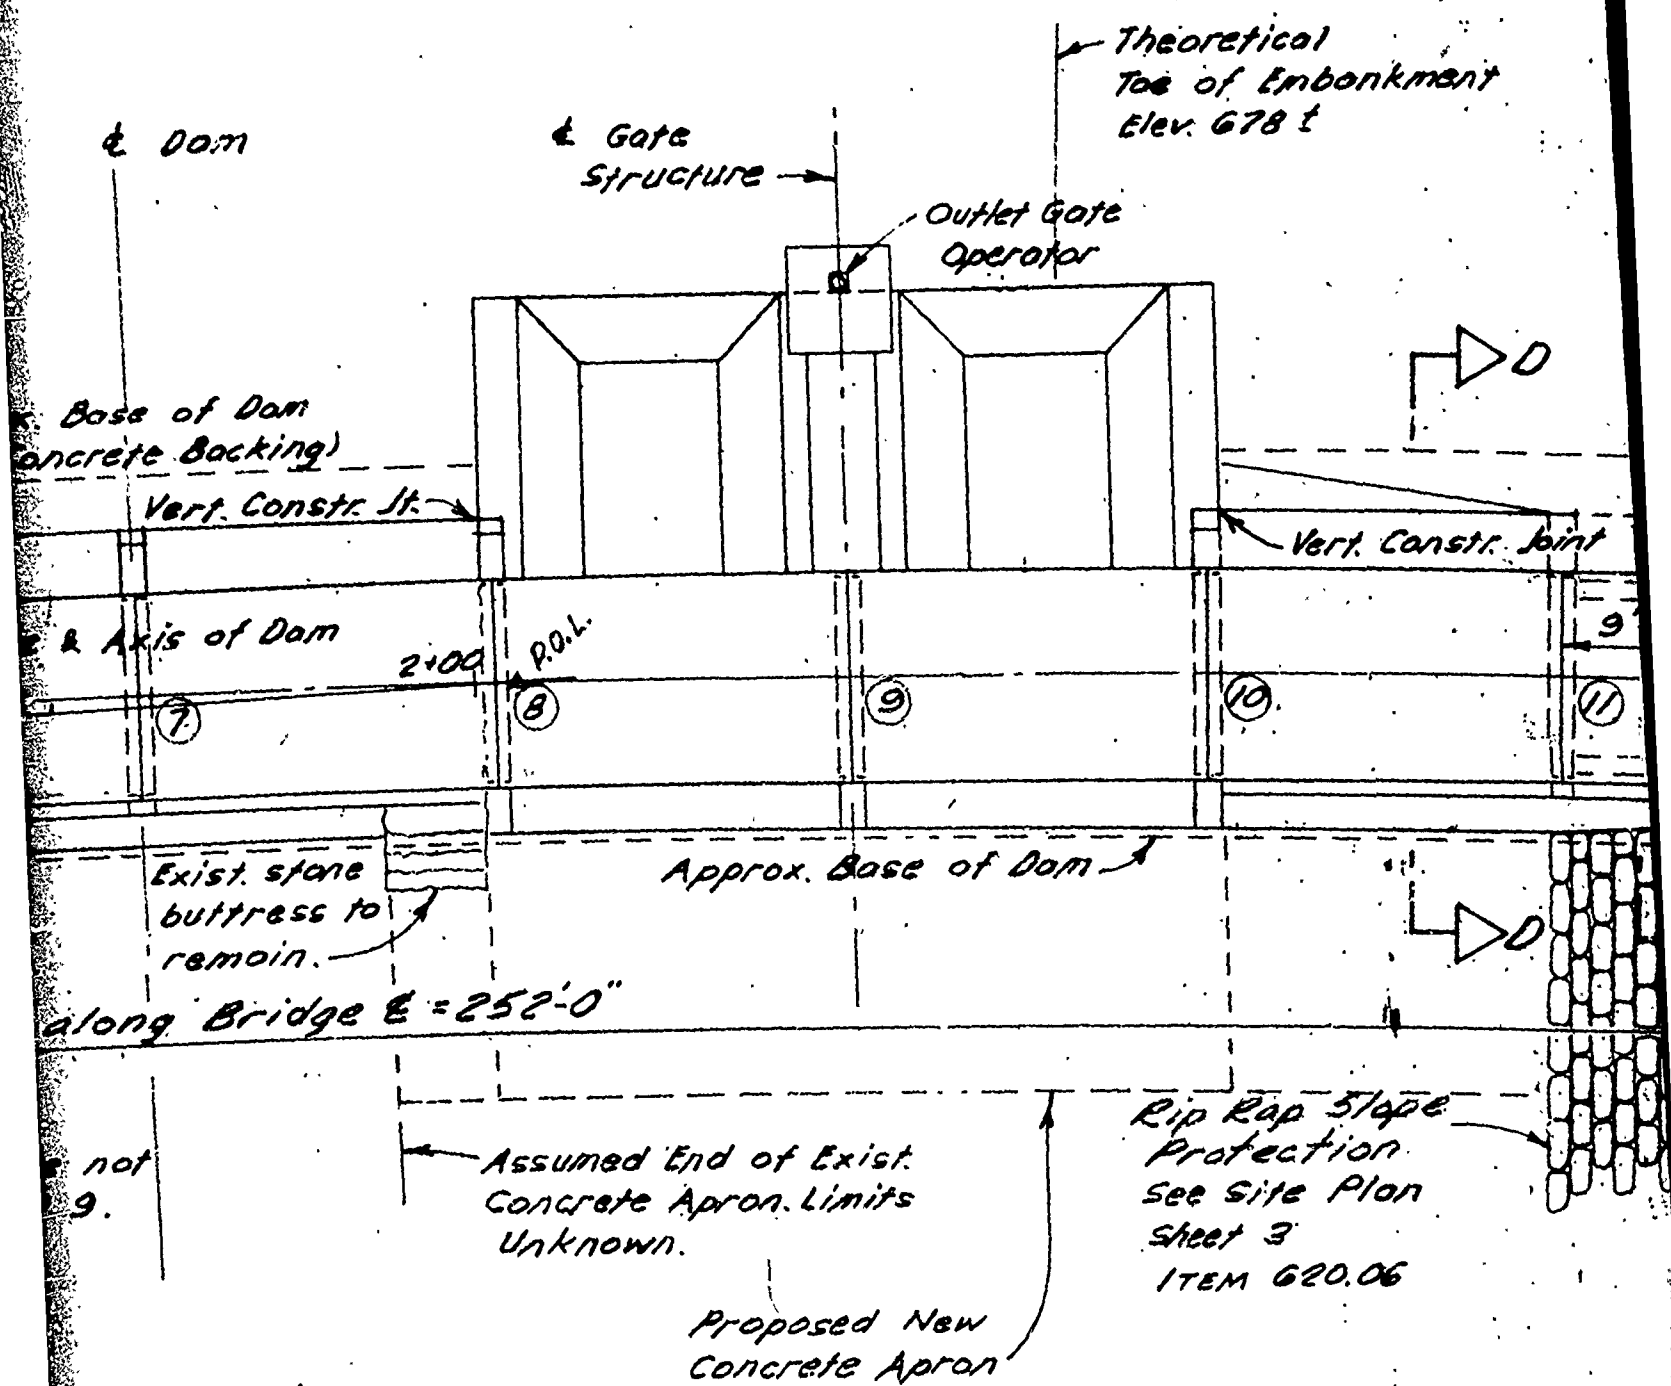 Theoretical
Toe of Embankment
Elev. 678 ±
℄ Dam
℄ Gate
Structure
Outlet Gate
Operator
D
Base of Dam
oncrete Backing)
Vert. Constr. Jt.
Vert. Constr. Joint
& Axis of Dam
2+00
P.O.L.
9'
7
8
9
10
11
Exist. stone
buttress to
remain.
Approx. Base of Dam
D
along Bridge ℄ = 252'-0"
Assumed End of Exist.
Concrete Apron. Limits
Unknown.
Rip Rap Slope
Protection
See Site Plan
Sheet 3
ITEM 620.06
not
9.
Proposed New
Concrete Apron